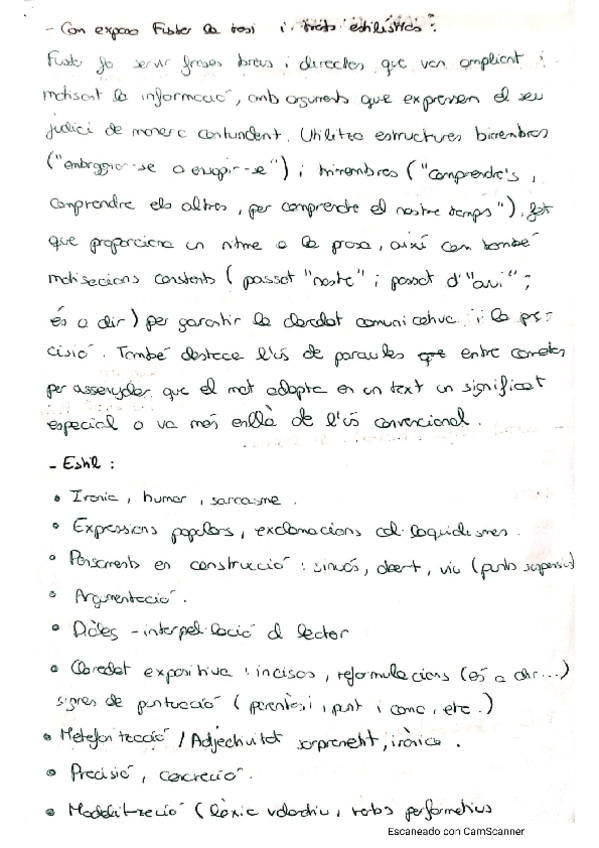 - Com exposa Fuster la tesi i trets estilístics:
Fuster fa servir frases breus i directes que van ampliant i
matisant la informació, amb arguments que expressen el seu
judici de manera contundent. Utilitza estructures bimembres
("embragar-se o engegar-se") i trimembres ("Comprendre's,
comprendre els altres, per comprendre el nostre temps"), fet
que proporciona un ritme a la prosa, així com també
matisacions constants (passat "nostre" i passat d'"avui";
és a dir) per garantir la claredat comunicativa i la pre-
cisió. També destaca l'ús de paraules que entre cometes
per assenyalar que el mot adopta en un text un significat
especial o va més enllà de l'ús convencional.
- Estil:
• Ironia, humor, sarcasme.
• Expressions populars, exclamacions col·loquialismes.
• Pensaments en construcció: sinuós, obert, viu (punts suspensius)
• Argumentació.
• Diàleg - interpel·lació al lector
• Claredat expositiva: incisos, reformulacions (és a dir...)
signes de puntuació (parèntesi, punt i coma, etc.)
• Metaforització / Adjectivitat sorprenent, irònica.
• Precisió, concreció.
• Modalització (lèxic valoratiu, verbs performatius
Escaneado con CamScanner